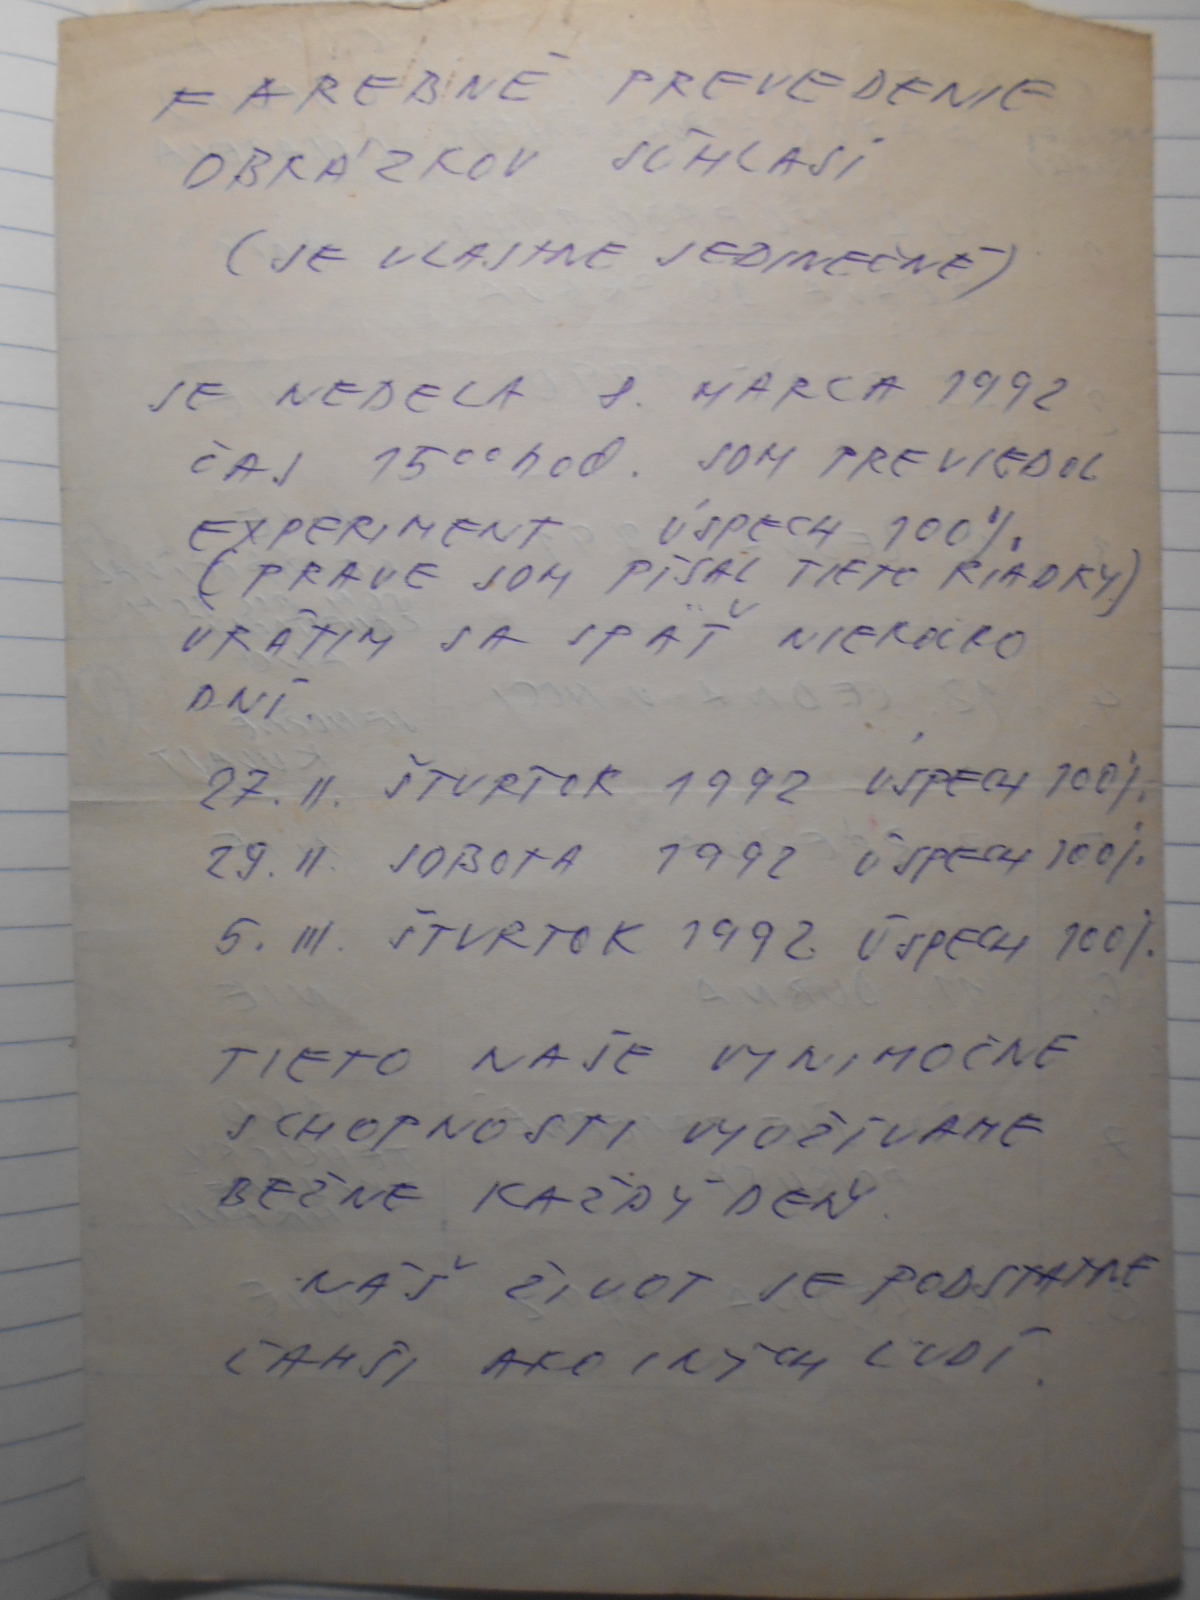 FAREBNÉ PREVEDENIE
OBRÁZKOV SÚHLASÍ
(JE VLASTNE JEDINEČNÉ)
JE NEDEĽA 8. MARCA 1992
ČAS 15°° hod. SOM PREVIEDOL
EXPERIMENT ÚSPECH 100%
(PRAVE SOM PÍSAL TIETO RIADKY)
VRÁTIM SA SPÄŤ NIEKOĽKO
DNÍ.
27. II. ŠTVRTOK 1992 ÚSPECH 100%.
29. II. SOBOTA 1992 ÚSPECH 100%.
5. III. ŠTVRTOK 1992 ÚSPECH 100%.
TIETO NAŠE VYNIMOČNE
SCHOPNOSTI VYUŽÍVAME
BEŽNE KAŽDÝ DEŇ.
NÁŠ ŽIVOT JE PODSTATNE
ĽAHŠI AKO INÝCH ĽUDÍ.